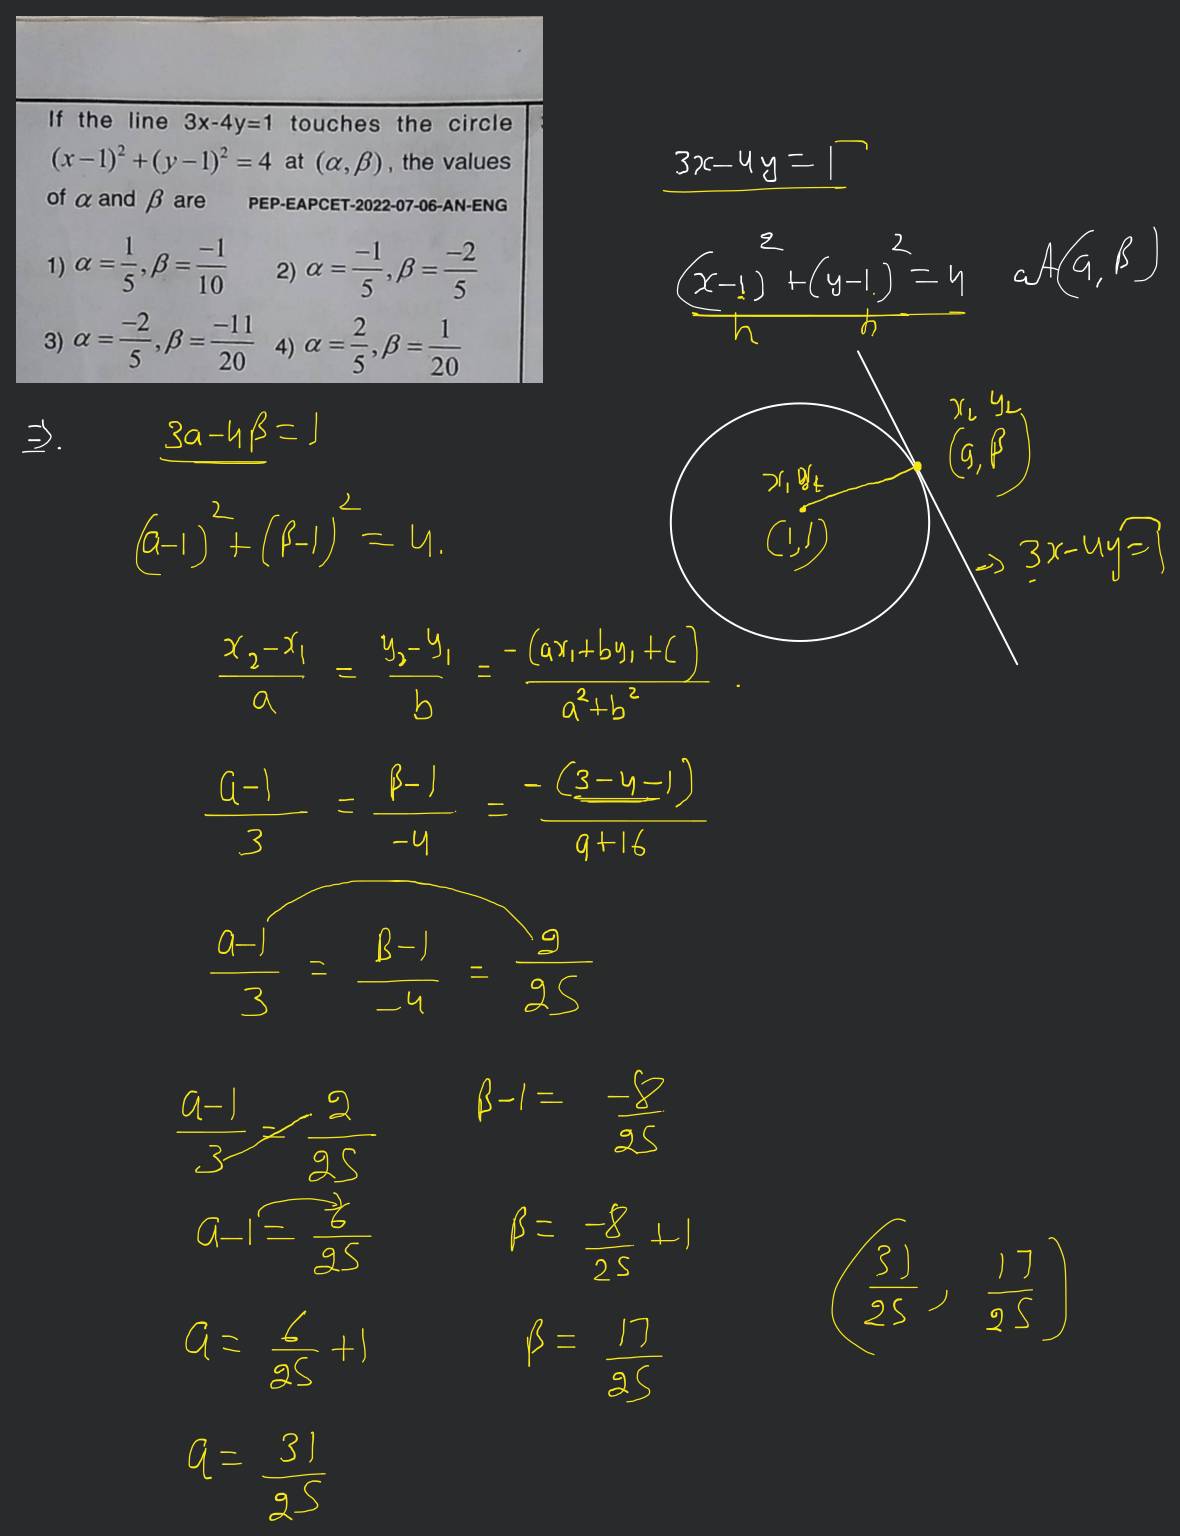 If the line 3x-4y=1 touches the circle
(x−1)² +(y−1)² = 4 at (α, β), the values
of α and β are PEP-EAPCET-2022-07-06-AN-ENG
1) α = 1/5, β = −1/10 2) α = −1/5, β = −2/5
3) α = −2/5, β = −11/20 4) α = 2/5, β = 1/20
3x−4y=1
(x−1)² +(y−1)² = 4 at (a, β)
h h
⇒. 3a−4β=1
(a−1)² + (β−1)² = 4.
x₂ y₂
(a, β)
x₁ y₁
(1,1)
⇒ 3x−4y=1
(x₂−x₁)/a = (y₂−y₁)/b = −(ax₁+by₁+c)/(a²+b²).
(a−1)/3 = (β−1)/−4 = −(3−4−1)/(9+16)
(a−1)/3 = (β−1)/−4 = 2/25
(a−1)/3 = 2/25 β−1 = −8/25
a−1 = 6/25 β = −8/25 +1
(31/25, 17/25)
a = 6/25 +1 β = 17/25
a = 31/25